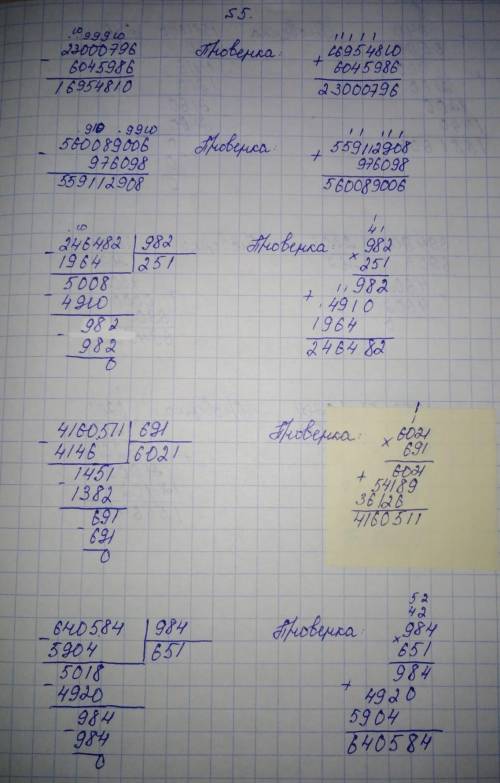 55.
.10 9 9 9 10
- 23000796
6045986
16954810
Проверка:
1 1 1 1
+ 16954810
6045986
23000796
. 9 10 . 9 9 10
- 560089006
976098
559112908
Проверка:
1 1 1 1 1
+ 559112908
976098
560089006
. 10
- 246482 | 982
1964 | 251
- 5008
4910
- 982
982
0
Проверка:
1
4 1
× 982
251
1 1
+ 982
4910
1964
246482
- 4160511 | 691
4146 | 6021
- 1451
1382
- 691
691
0
Проверка:
1
× 6021
691
+ 6021
54189
36126
4160511
- 640584 | 984
5904 | 651
- 5018
4920
- 984
984
0
Проверка:
5 2
4 2
× 984
651
+ 984
4920
5904
640584